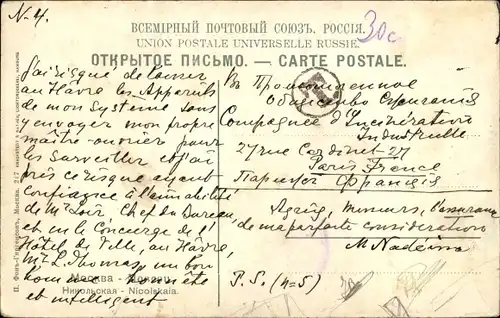 N-4.
30c
ВСЕМІРНЫЙ ПОЧТОВЫЙ СОЮЗЪ. РОССІЯ.
UNION POSTALE UNIVERSELLE RUSSIE.
ОТКРЫТОЕ ПИСЬМО. — CARTE POSTALE.
J'ai risqué de laisser
au Hâvre les Appareils
de mon Systeme sans
y envoyer mon propre
maître-ouvrier pour
les surveiller et j'ai
pris ce risque ayant
confiance à l'amabilité
de Mr Chef du Bureau,
et en le Concierge de l'
Hôtel de Ville, au Hâvre,
Mr L. Thomas, un bon
homme honnête
et intelligent
Москва -
Никольская - Nicolskaïa.
Въ Промышленное
Общество Сжиганія
Compagnie d'Incinération
Industrielle
27 rue Cardinet 27
Paris France
Парижъ Франція
Agréez, messieurs, l'assurance
de ma parfaite considération
M.
P.S. (4=5)